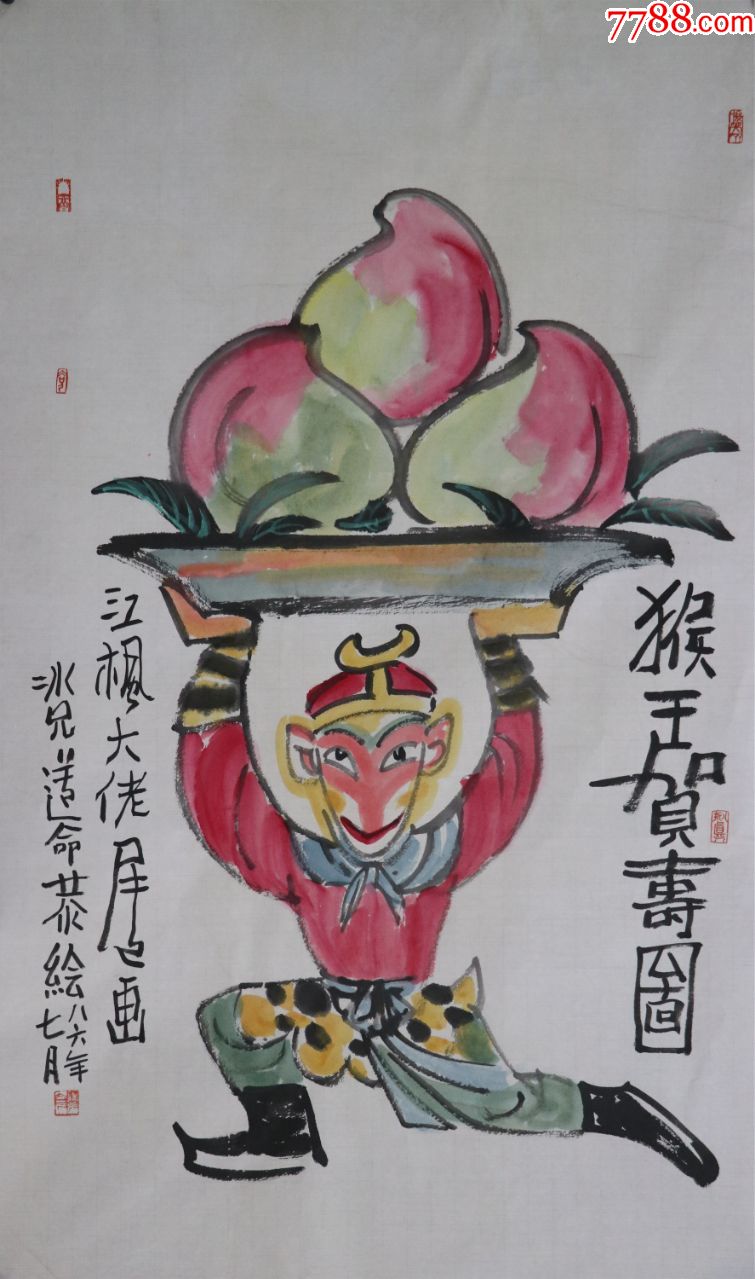 7788.com
猴王賀壽圖
江楓大佬屬画
冰兄遵命恭绘
八六年
七月